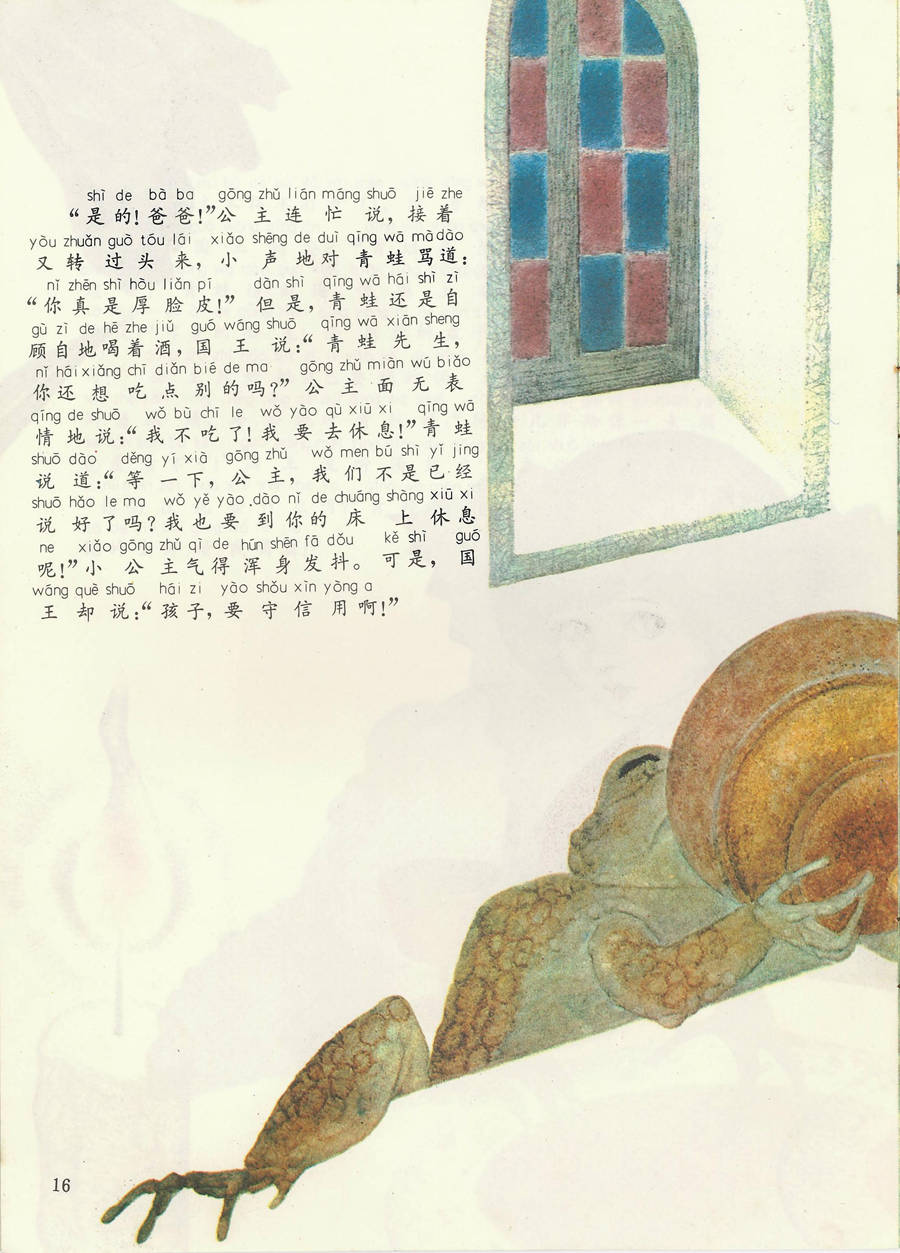 shì de bà ba gōng zhǔ lián máng shuō jiē zhe
“是的！爸爸！”公主连忙说，接着
yòu zhuǎn guò tóu lái xiǎo shēng de duì qīng wā mà dào
又转过头来，小声地对青蛙骂道：
nǐ zhēn shì hòu liǎn pí dàn shì qīng wā hái shì zì
“你真是厚脸皮！”但是，青蛙还是自
gù zì de hē zhe jiǔ guó wáng shuō qīng wā xiān sheng
顾自地喝着酒，国王说：“青蛙先生，
nǐ hái xiǎng chī diǎn bié de ma gōng zhǔ miàn wú biǎo
你还想吃点别的吗？”公主面无表
qíng de shuō wǒ bù chī le wǒ yào qù xiū xi qīng wā
情地说：“我不吃了！我要去休息！”青蛙
shuō dào děng yí xià gōng zhǔ wǒ men bú shì yǐ jing
说道：“等一下，公主，我们不是已经
shuō hǎo le ma wǒ yě yào dào nǐ de chuáng shàng xiū xi
说好了吗？我也要到你的床上休息
ne xiǎo gōng zhǔ qì de hún shēn fā dǒu kě shì guó
呢！”小公主气得浑身发抖。可是，国
wáng què shuō hái zi yào shǒu xìn yòng a
王却说：“孩子，要守信用啊！”
16